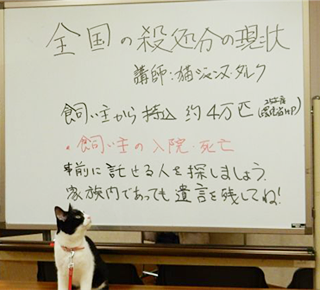 全国の殺処分の現状
講師:猫ジャンヌ・ダルク
飼い主から持込 約4万匹 (25年度 環境省HP)
・飼い主の入院・死亡
事前に託せる人を探しましょう。
家族内であっても遺言を残してね!